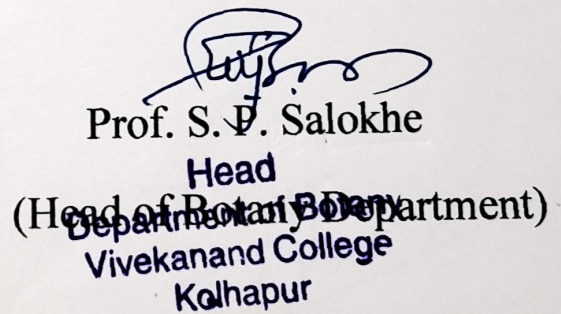 Prof. S. P. Salokhe
Head
(Head of Botany Department)
Department of Botany
Vivekanand College
Kolhapur